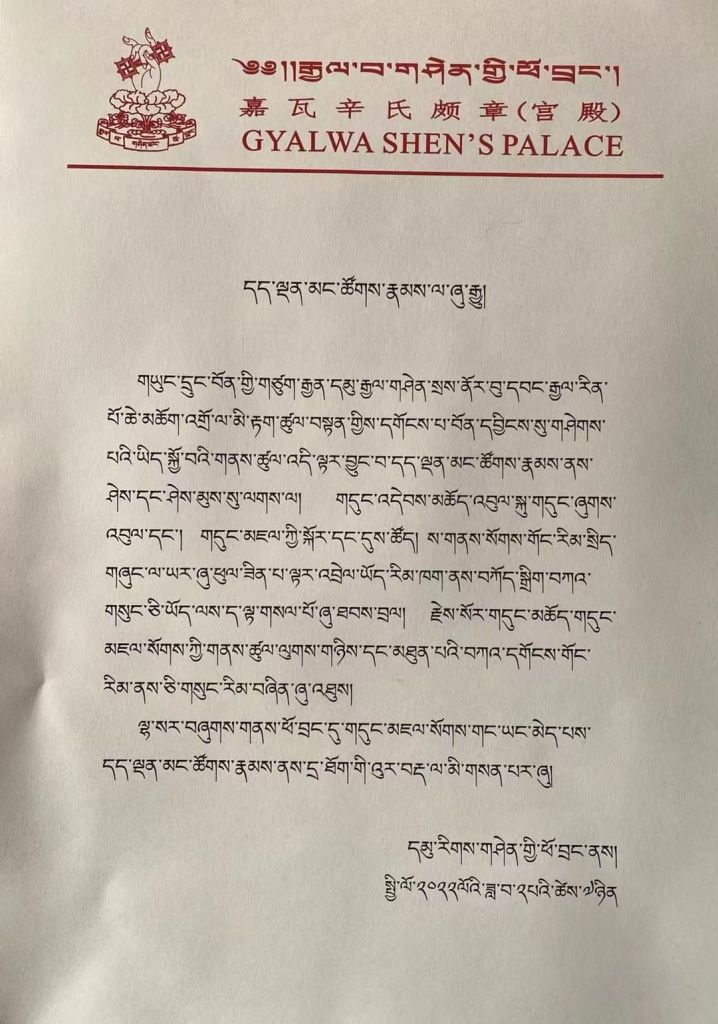 ༄༅།།རྒྱལ་བ་གཤེན་གྱི་ཕོ་བྲང་།
嘉瓦辛氏颇章(宫殿)
GYALWA SHEN'S PALACE
དད་ལྡན་མང་ཚོགས་རྣམས་ལ་ཞུ་རྒྱུ།
གཡུང་དྲུང་བོན་གྱི་གཙུག་རྒྱན་དམུ་རྒྱལ་གཤེན་སྲས་ནོར་བུ་དབང་རྒྱལ་རིན་
པོ་ཆེ་མཆོག་འགྲོ་ལ་མི་རྟག་ཚུལ་བསྟན་གྱིས་དགོངས་པ་བོན་དབྱིངས་སུ་གཤེགས་
པའི་ཡིད་སྐྱོ་བའི་གནས་ཚུལ་འདི་ལྟར་བྱུང་བ་དད་ལྡན་མང་ཚོགས་རྣམས་ནས་
ཤེས་དང་ཤེས་མུས་སུ་ལགས་ལ། གདུང་འདེབས་མཆོད་འབུལ་སྐུ་གདུང་ཞུགས་
འབུལ་དང་། གདུང་མཇལ་ཀྱི་སྐོར་དང་དུས་ཚོད། ས་གནས་སོགས་གོང་རིམ་སྲིད་
གཞུང་ལ་ཡར་ཞུ་ཕུལ་ཟིན་པ་ལྟར་འབྲེལ་ཡོད་རིམ་ཁག་ནས་བཀོད་སྒྲིག་བཀའ་
གསུང་ཅི་ཡོད་ལས་ད་ལྟ་གསལ་པོ་ཞུ་ཐབས་བྲལ། རྗེས་སོར་གདུང་མཆོད་གདུང་
མཇལ་སོགས་ཀྱི་གནས་ཚུལ་ལུགས་གཉིས་དང་མཐུན་པའི་བཀའ་དགོངས་གོང་
རིམ་ནས་ཅི་གསུང་རིམ་བཞིན་ཞུ་འཐུས།
ལྷ་སར་བཞུགས་གནས་ཕོ་བྲང་དུ་གདུང་མཇལ་སོགས་གང་ཡང་མེད་པས་
དད་ལྡན་མང་ཚོགས་རྣམས་ནས་དྲ་ཐོག་གི་འུར་བརྡ་ལ་མི་གསན་པར་ཞུ།
དམུ་རིགས་གཤེན་གྱི་ཕོ་བྲང་ནས།
སྤྱི་ལོ་༢༠༢༢ལོའི་ཟླ་བ་༢པའི་ཚེས་༧ཉིན